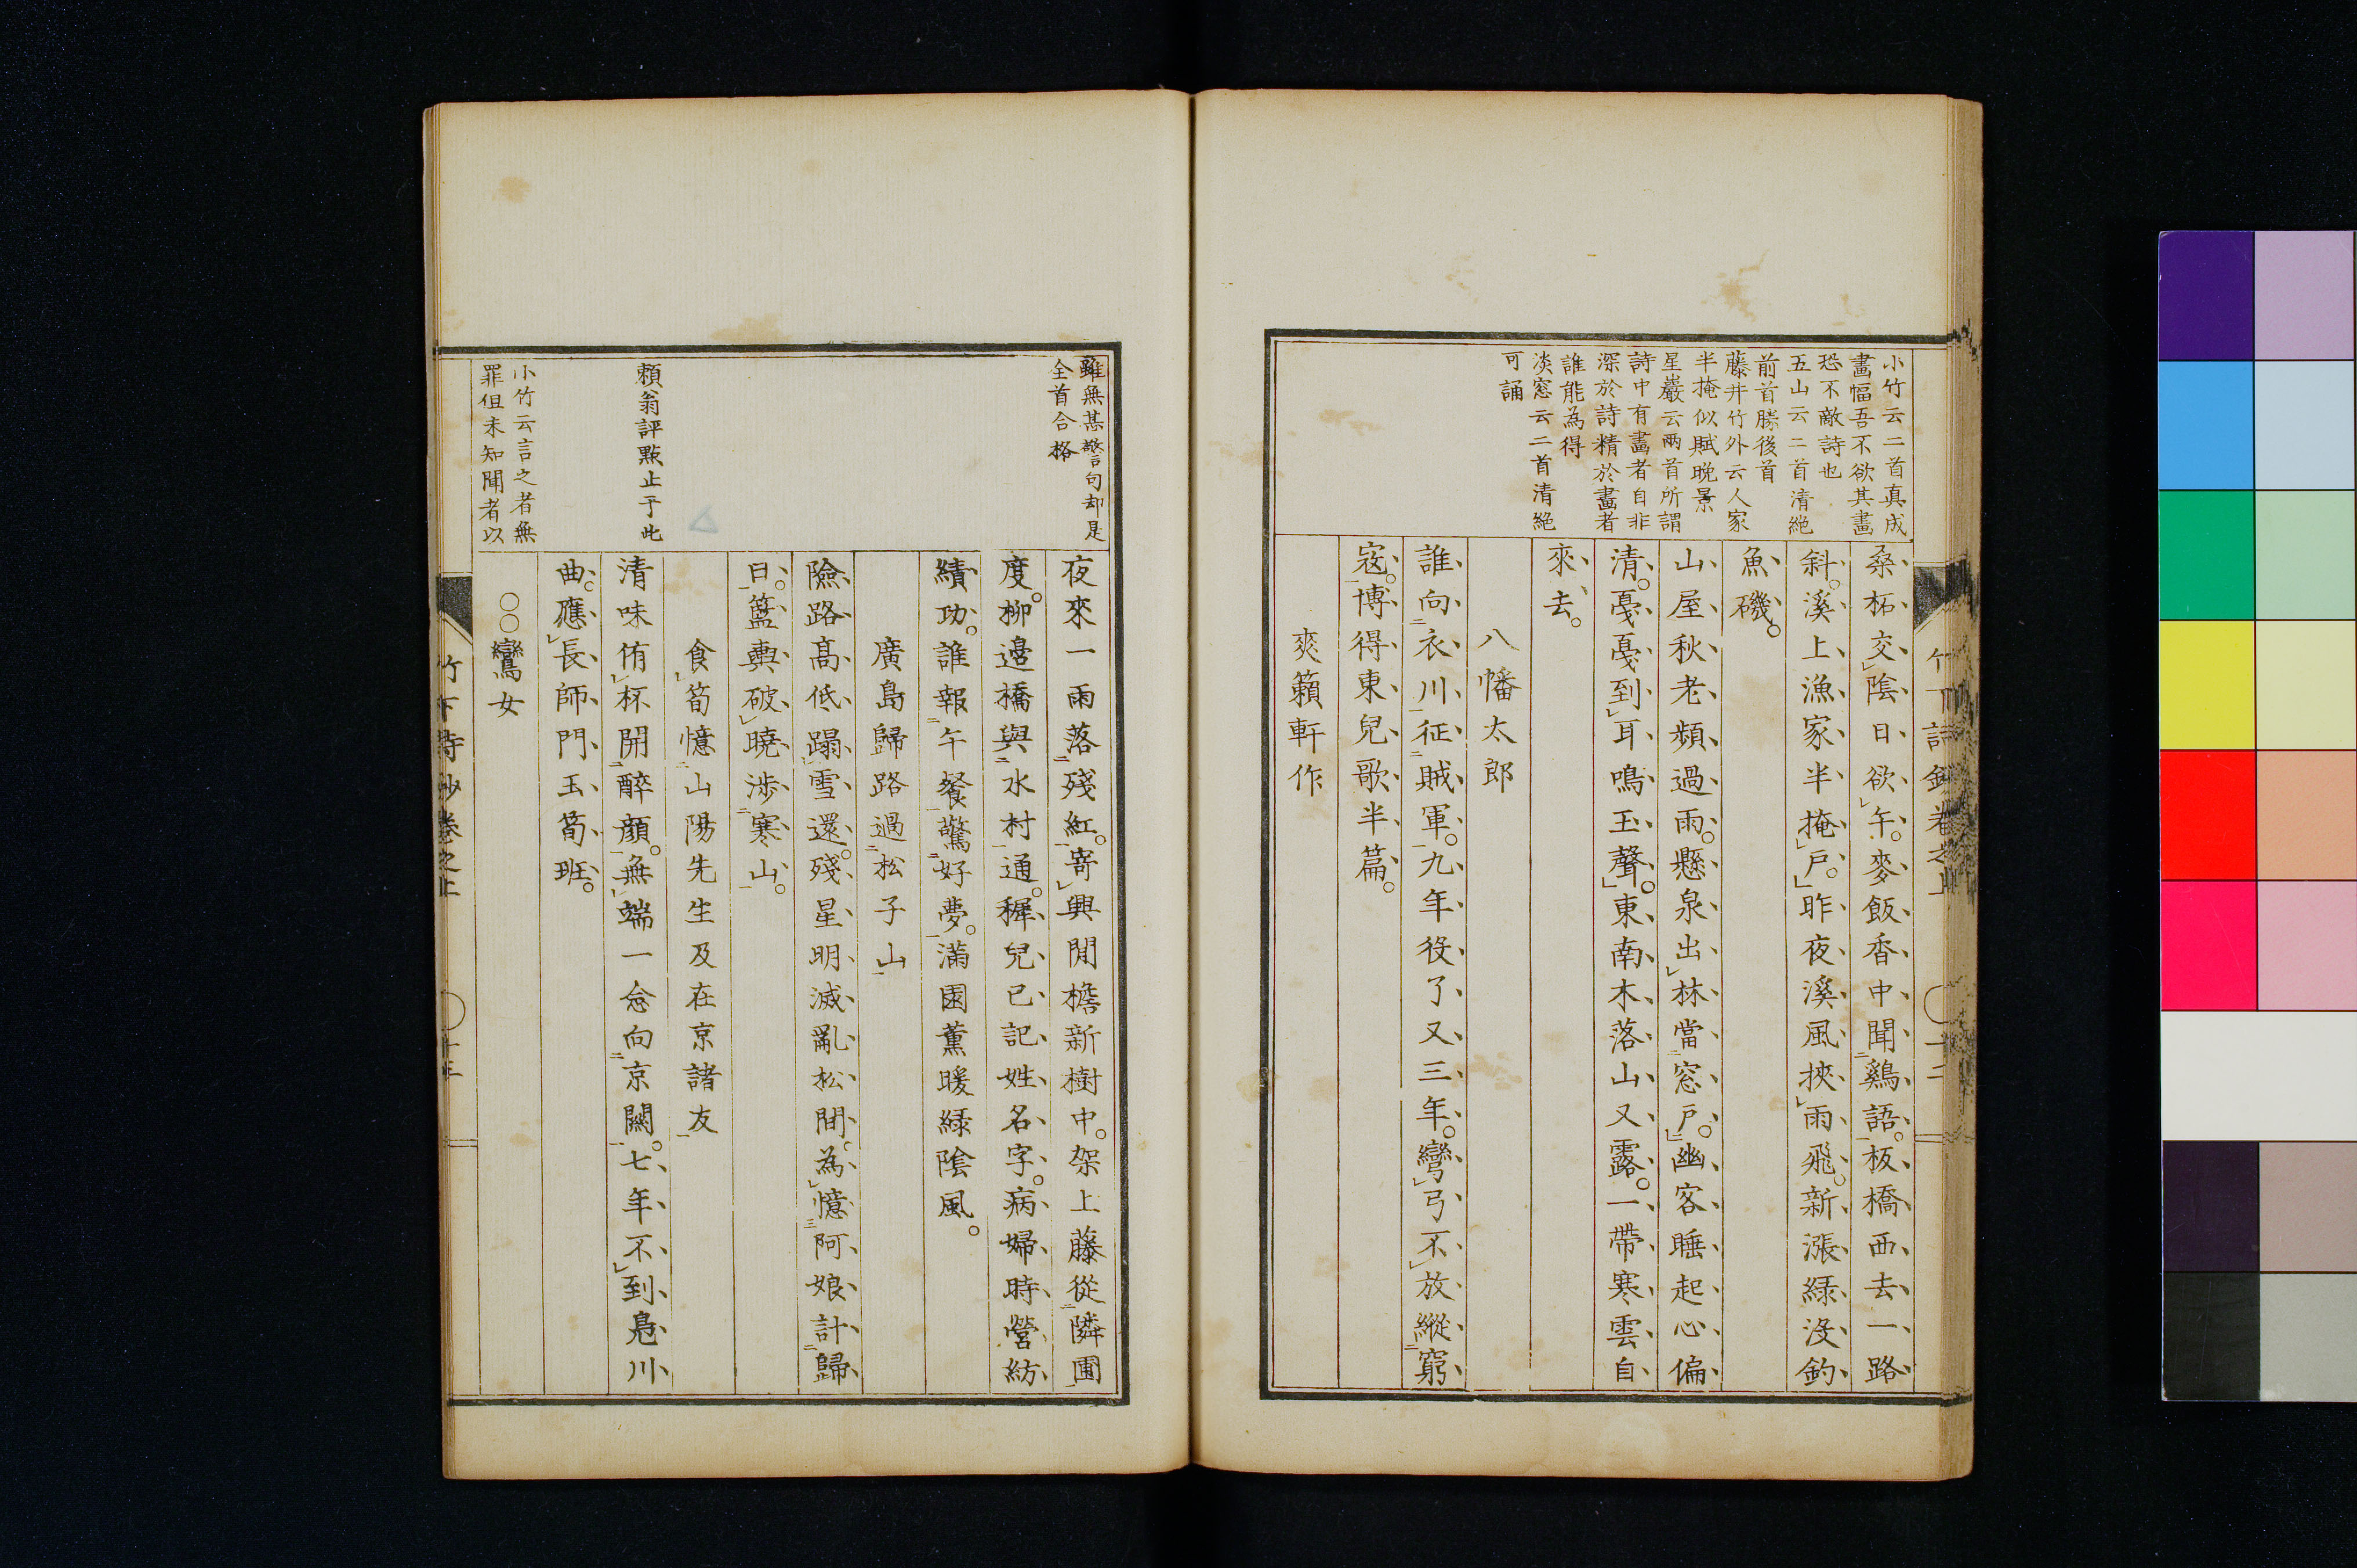 小竹云二首真成
畫幅吾不欲其畫
恐不敵詩也
五山云二首清絶
前首勝後首
藤井竹外云人家
半掩似賦晩景
星巖云兩首所謂
詩中有畫者自非
深於詩精於畫者
誰能為得
淡窓云二首清絶
可誦
桑柘交陰日欲午。麥飯香中聞鷄語。板橋西去一路
斜。溪上漁家半掩戸。昨夜溪風挾雨飛。新漲緑沒釣
魚磯。
山屋秋老頻過雨。懸泉出林當窓戸。幽客睡起心偏
清。戞戞到耳鳴玉聲。東南木落山又露。一帶寒雲自
來去。
八幡太郎
誰向衣川征賊軍。九年役了又三年。彎弓不放縱窮
寇。博得東兒歌半篇。
爽籟軒作
雖無甚警句却是
全首合格
夜來一雨落殘紅。寄興閒檐新樹中。架上藤從隣圃
度。柳邉橋與水村通。穉兒已記姓名字。病婦時營紡
績功。誰報午餐驚好夢。滿園薫暖緑陰風。
廣島歸路過松子山
險路高低蹋雪還。殘星明滅亂松間。為憶阿娘計歸
日。籃輿破曉渉寒山。
食筍憶山陽先生及在京諸友
頼翁評點止于此
清味侑杯開醉顔。無端一念向京關。七年不到鳧川
曲。應長師門玉筍班。
○○鸞女
小竹云言之者無
罪但未知聞者以
竹下詩鈔卷之上